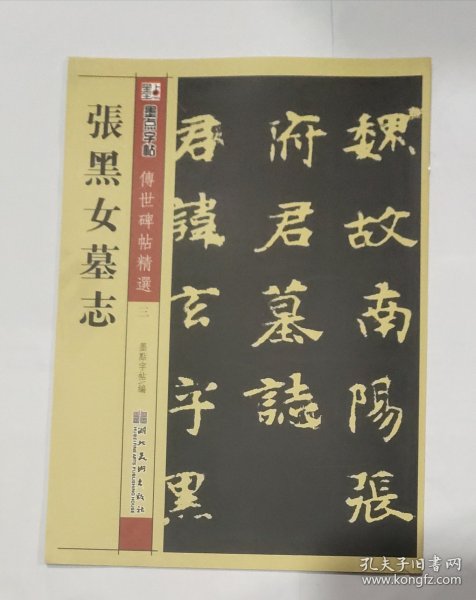 張黑女墓志
墨点字帖
傳世碑帖精選
三
墨點字帖 編
湖北美术出版社
HUBEI FINE ARTS PUBLISHING HOUSE
魏故南陽張
府君墓誌
君諱玄字黑
孔夫子旧书网
www.kongfz.com